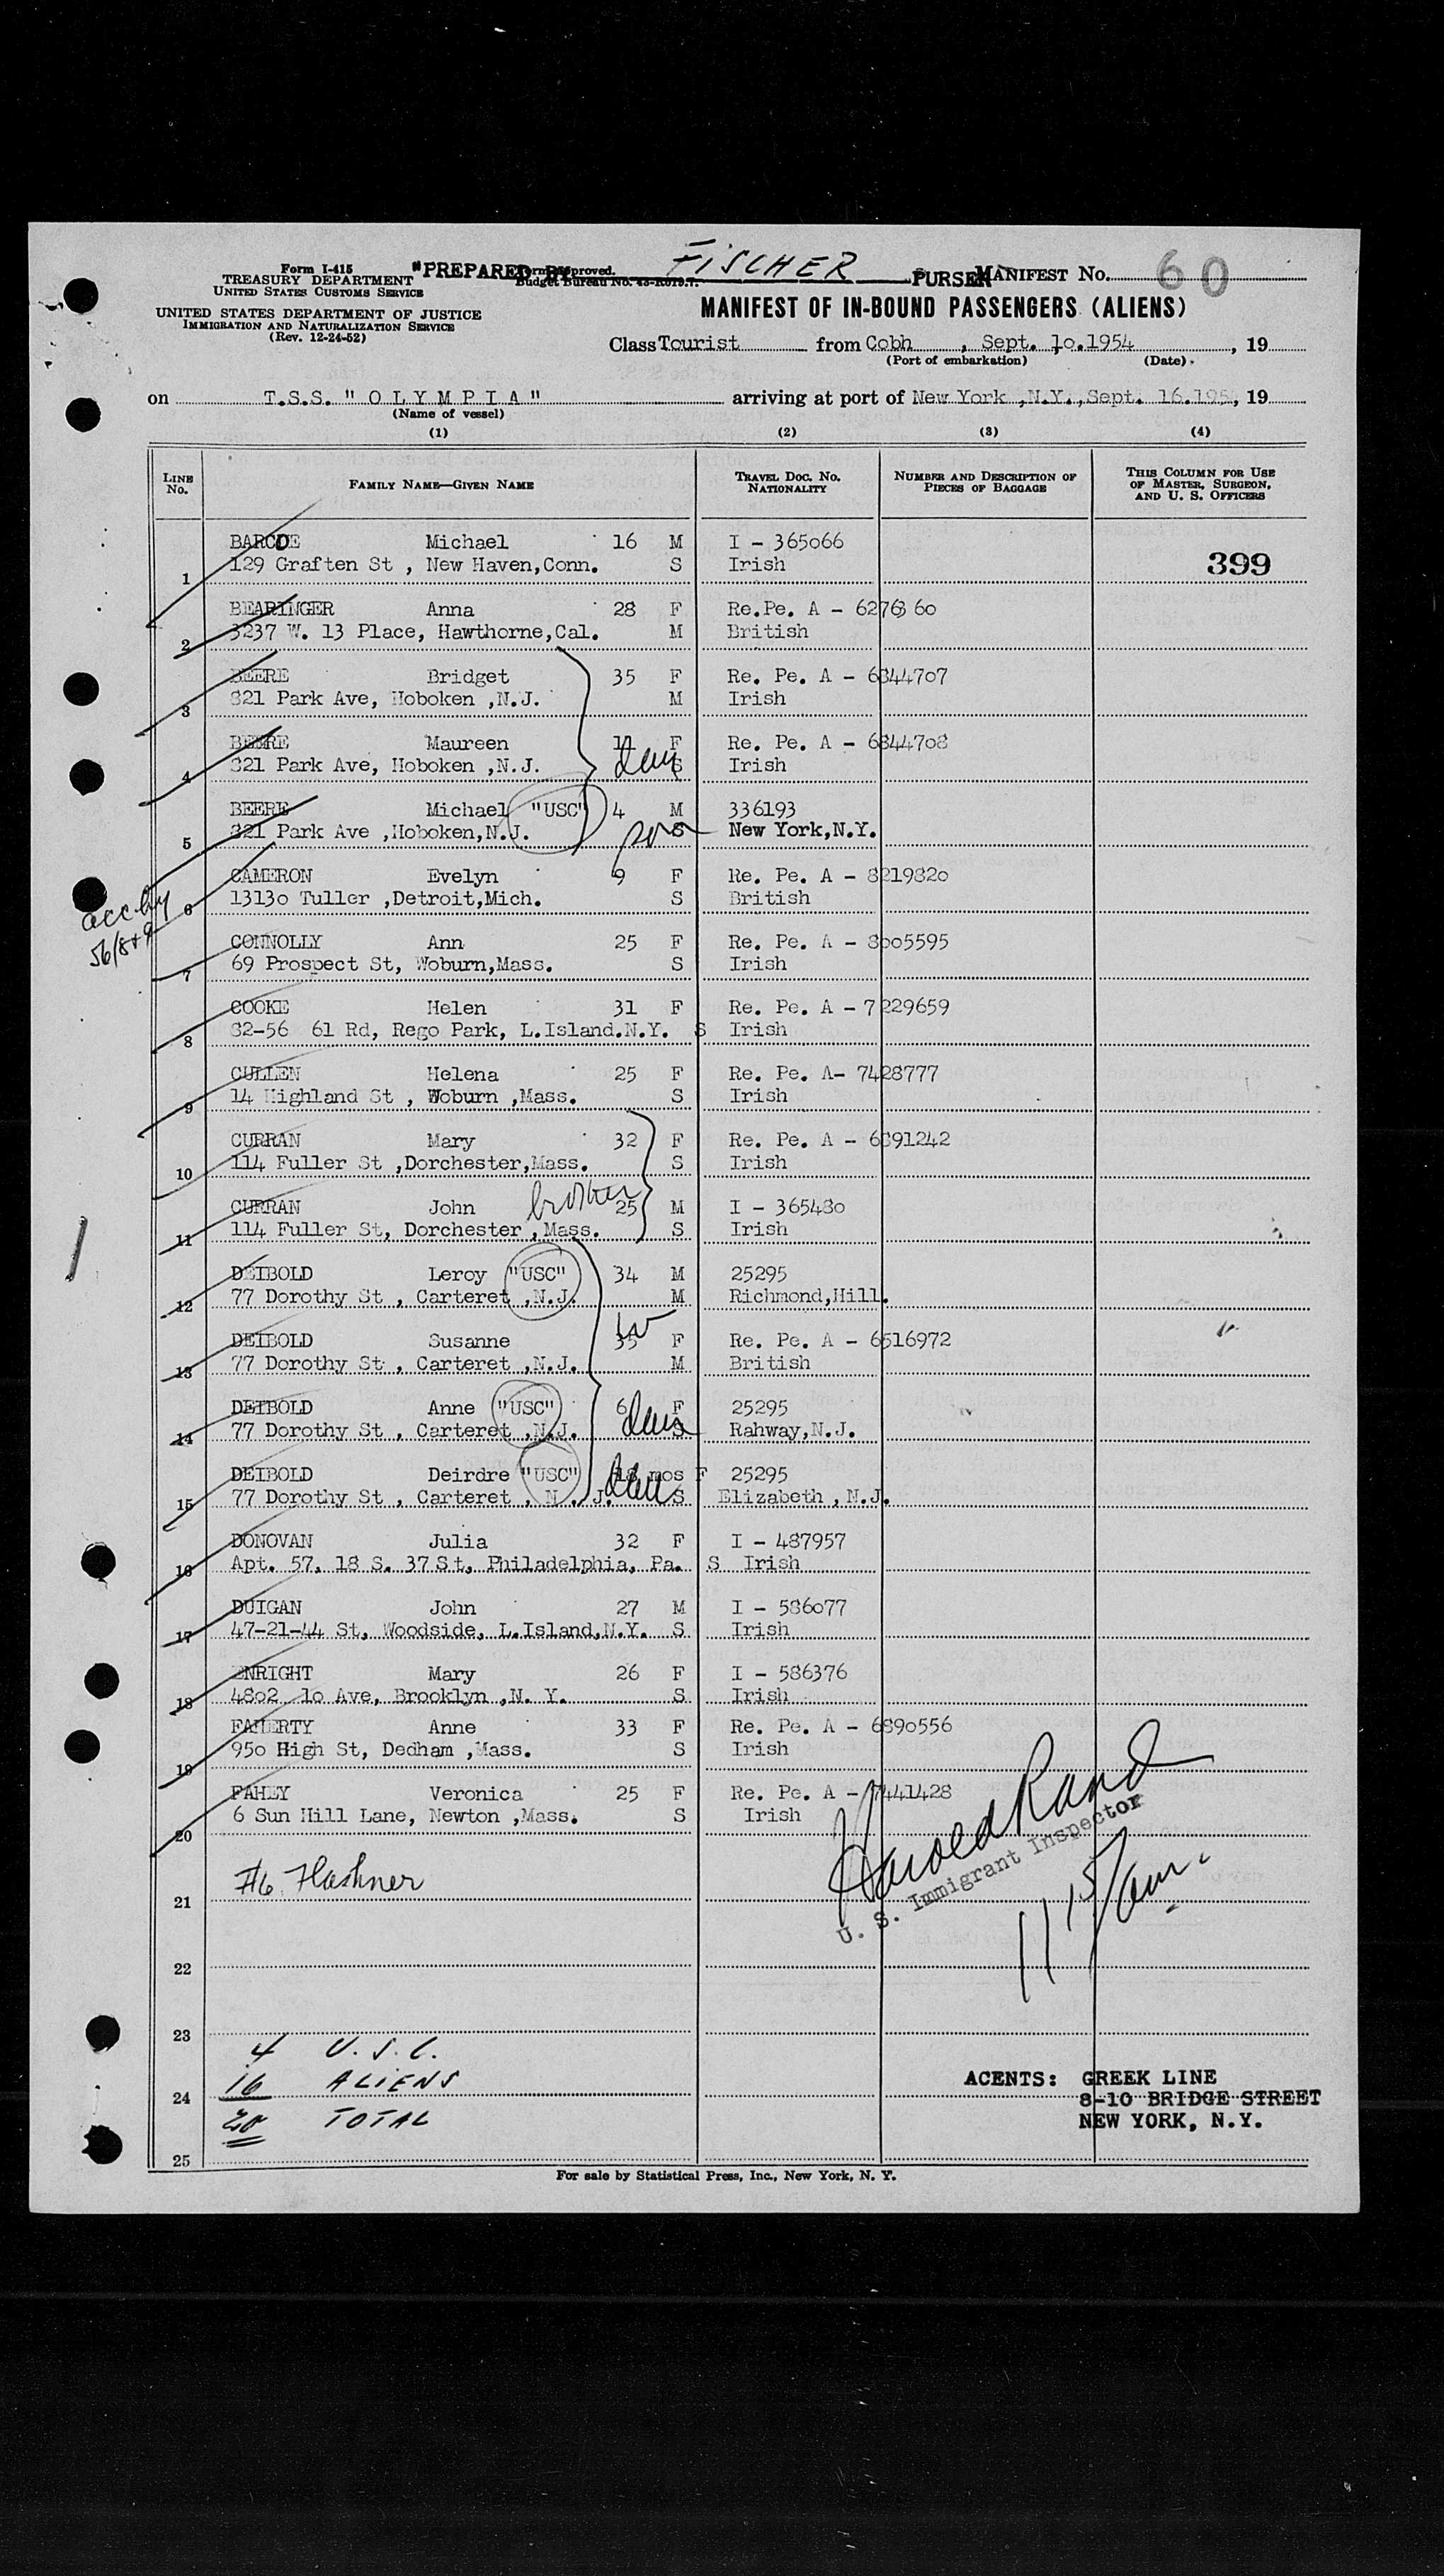 Form I-415
TREASURY DEPARTMENT
UNITED STATES CUSTOMS SERVICE
UNITED STATES DEPARTMENT OF JUSTICE
IMMIGRATION AND NATURALIZATION SERVICE
(Rev. 12-24-52)
"PREPARED BY FISCHER PURSER
Form approved.
Budget Bureau No. 43-R019.7.
MANIFEST NO. 60
MANIFEST OF IN-BOUND PASSENGERS (ALIENS)
Class Tourist from Cobh , Sept. 10.1954 , 19
(Port of embarkation) (Date)
on T.S.S. " O L Y M P I A " arriving at port of New York ,N.Y.,Sept. 16.195 , 19
(Name of vessel)
(1) (2) (3) (4)
LINE NO. FAMILY NAME—GIVEN NAME TRAVEL DOC. NO. NATIONALITY NUMBER AND DESCRIPTION OF PIECES OF BAGGAGE THIS COLUMN FOR USE OF MASTER, SURGEON, AND U. S. OFFICERS
BARCOE Michael 16 M I - 365066
1 129 Graften St , New Haven,Conn. S Irish 399
BEARINGER Anna 28 F Re.Pe. A - 6276360
2 3237 W. 13 Place, Hawthorne,Cal. M British
BEERE Bridget 35 F Re. Pe. A - 6844707
3 821 Park Ave, Hoboken ,N.J. M Irish
BEERE Maureen 11 F Re. Pe. A - 6844708
4 821 Park Ave, Hoboken ,N.J. dau S Irish
BEERE Michael "USC" 4 M 336193
5 821 Park Ave ,Hoboken,N.J. son S New York,N.Y.
CAMERON Evelyn 9 F Re. Pe. A - 8219820
6 13130 Tuller ,Detroit,Mich. S British
acc by
56/8+9
CONNOLLY Ann 25 F Re. Pe. A - 8005595
7 69 Prospect St, Woburn,Mass. S Irish
COOKE Helen 31 F Re. Pe. A - 7229659
8 82-56 61 Rd, Rego Park, L.Island.N.Y. S Irish
CULLEN Helena 25 F Re. Pe. A- 7428777
9 14 Highland St , Woburn ,Mass. S Irish
CURRAN Mary 32 F Re. Pe. A - 6891242
10 114 Fuller St ,Dorchester,Mass. S Irish
CURRAN John brother 25 M I - 365480
11 114 Fuller St, Dorchester ,Mass. S Irish
DEIBOLD Leroy "USC" 34 M 25295
12 77 Dorothy St , Carteret ,N.J. M Richmond,Hill.
DEIBOLD Susanne w 35 F Re. Pe. A - 6516972
13 77 Dorothy St , Carteret ,N.J. M British
DEIBOLD Anne "USC" 6 F 25295
14 77 Dorothy St , Carteret ,N.J. dau S Rahway,N.J.
DEIBOLD Deirdre "USC" 18 mos F 25295
15 77 Dorothy St , Carteret , N . J. dau S Elizabeth , N.J.
DONOVAN Julia 32 F I - 487957
16 Apt. 57, 18 S. 37 St, Philadelphia, Pa. S Irish
DUIGAN John 27 M I - 586077
17 47-21-44 St, Woodside, L.Island,N.Y. S Irish
ENRIGHT Mary 26 F I - 586376
18 4802 10 Ave, Brooklyn ,N. Y. S Irish
FAHERTY Anne 33 F Re. Pe. A - 6890556
19 950 High St, Dedham ,Mass. S Irish
FAHEY Veronica 25 F Re. Pe. A - 7441428
20 6 Sun Hill Lane, Newton ,Mass. S Irish
Harold Rand
U. S. Immigrant Inspector
11 15/am.
#6 Flashner
21
22
23
4 U.S.C.
16 ALIENS
24
20 TOTAL
25
AGENTS: GREEK LINE
8-10 BRIDGE STREET
NEW YORK, N.Y.
For sale by Statistical Press, Inc., New York, N. Y.